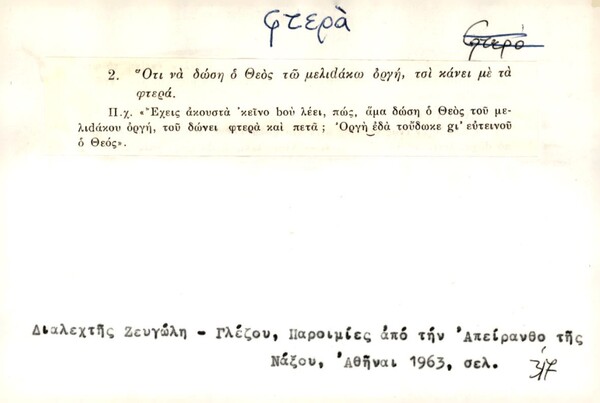 φτερὰ
φτερό
2. Ὅτι νὰ δώσῃ ὁ Θεὸς τῶ μελιdάκω ὀργή, τσὶ κάνει μὲ τὰ
φτερά.
Π.χ. «Ἔχεις ἀκουστὰ ᾿κεῖνο bοὺ λέει, πώς, ἅμα δώσῃ ὁ Θεὸς τοῦ με-
λιdάκου ὀργή, τοῦ δώνει φτερὰ καὶ πετᾷ; Ὀργὴ ἐδὰ τοὔδωκε gι᾿ εὐτεινοῦ
ὁ Θεός».
Διαλεχτῆς Ζευγώλη - Γλέζου, Παροιμίες ἀπό τήν Ἀπείρανθο τῆς
Νάξου, Ἀθῆναι 1963, σελ. 317